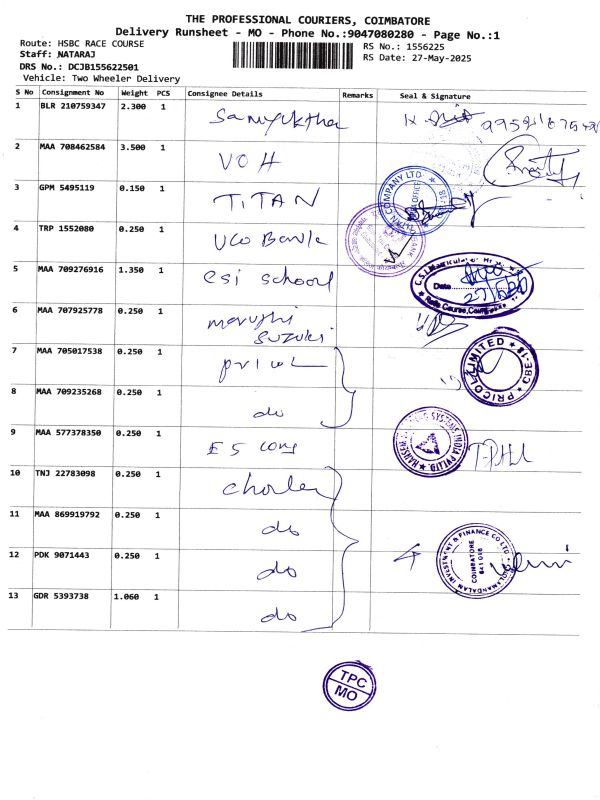 THE PROFESSIONAL COURIERS, COIMBATORE
Delivery Runsheet - MO - Phone No.:9047080280 - Page No.:1
Route: HSBC RACE COURSE
RS No.: 1556225
Staff: NATARAJ
RS Date: 27-May-2025
DRS No.: DCJB155622501
Vehicle: Two Wheeler Delivery
S No Consignment No Weight PCS Consignee Details Remarks Seal & Signature
1 BLR 210759347 2.300 1 Samyuktha
2 MAA 708462584 3.500 1 VOH
3 GPM 5495119 0.150 1 TITAN
4 TRP 1552080 0.250 1 UCO Bank
5 MAA 709276916 1.350 1 csi school
6 MAA 707925778 0.250 1 maruthi
suzuki
7 MAA 705017538 0.250 1 pricol
8 MAA 709235268 0.250 1 do
9 MAA 577378350 0.250 1
10 TNJ 22783098 0.250 1
11 MAA 869919792 0.250 1 do
12 PDK 9071443 0.250 1 do
13 GDR 5393738 1.060 1 do
TITAN COMPANY LTD
Date
Race Course,
PRICOL LIMITED ★ CBE-18
SYSTEMS INDIA PVT LTD
CHOLAMANDALAM INVESTMENT & FINANCE CO LTD
COIMBATORE
641 018
TPC
MO